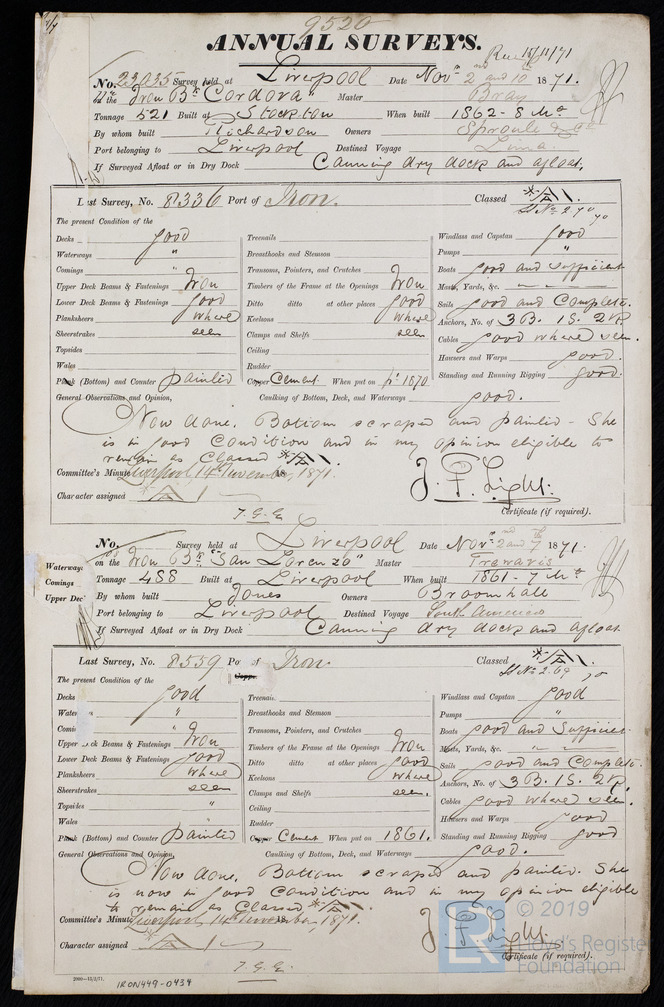 9520
ANNUAL SURVEYS.
Rec 15/11/71
No. 23035 Survey held at Liverpool Date Novr 2nd and 10th 1871.
on the Iron Bk "Cordova" Master Bray
Tonnage 521 Built at Stockton When built 1862-8 Mo
By whom built Richardson Owners Sproule & Co
Port belonging to Liverpool Destined Voyage Lima.
If Surveyed Afloat or in Dry Dock Canning dry dock and afloat.
Last Survey, No. 8336 Port of Iron. Classed A1.
The present Condition of the
Decks good
Waterways "
Comings "
Upper Deck Beams & Fastenings Iron
Lower Deck Beams & Fastenings good
Planksheers where
Sheerstrakes seen
Topsides
Wales
Plank (Bottom) and Counter painted
Treenails
Breasthooks and Stemson
Transoms, Pointers, and Crutches
Timbers of the Frame at the Openings Iron
Ditto ditto at other places good
Keelsons where
Clamps and Shelfs seen
Ceiling
Rudder
Copper Cement When put on 1870
Windlass and Capstan good
Pumps "
Boats good and sufficient
Masts, Yards, &c.
Sails good and Complete.
Anchors, No. of 3 B. 1 S. 2 K.
Cables good where seen.
Hawsers and Warps good.
Standing and Running Rigging good.
General Observations and Opinion, Caulking of Bottom, Deck, and Waterways good.
Now done. Bottom scraped and painted - She
is in good Condition and in my opinion eligible to
remain as Classed A1.
Committee's Minute Liverpool, 14th November, 1871.
J. F. Light.
Character assigned A 1
Certificate (if required).
T.G.G.
No. Survey held at Liverpool Date Novr 2nd and 7th 1871.
on the Iron Bk "San Lorenzo" Master Trewavis
Waterways
Comings
Upper Dec
Tonnage 488 Built at Liverpool When built 1861-7 Mo
By whom built Jones Owners Broomhall
Port belonging to Liverpool Destined Voyage South America
If Surveyed Afloat or in Dry Dock Canning dry dock and afloat
Last Survey, No. 8559 Po of Iron. Classed A1.
The present Condition of the
Decks good
Water "
Comi "
Upper Deck Beams & Fastenings Iron
Lower Deck Beams & Fastenings good
Planksheers where
Sheerstrakes seen
Topsides "
Wales "
Plank (Bottom) and Counter painted
Treenails
Breasthooks and Stemson
Transoms, Pointers, and Crutches
Timbers of the Frame at the Openings Iron
Ditto ditto at other places good
Keelsons where
Clamps and Shelfs seen.
Ceiling
Rudder
Copper Cement When put on 1861.
Windlass and Capstan good
Pumps "
Boats good and Sufficient
Masts, Yards, &c. "
Sails good and Complete.
Anchors, No. of 3 B. 1 S. 2 K.
Cables good where seen.
Hawsers and Warps good
Standing and Running Rigging good
General Observations and Opinion, Caulking of Bottom, Deck, and Waterways good.
Now done. Bottom scraped and painted. She
is now in good Condition and in my opinion eligible
to remain as Classed A1.
Committee's Minute Liverpool, 14th November, 1871.
J. F. Light.
Character assigned A 1
Certificate (if required).
T.G.G.
IRON449-0434
LR © 2019
Lloyd's Register
Foundation